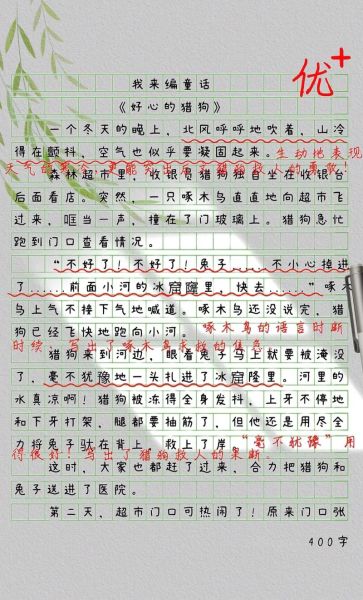 优+
我来编童话
《好心的猎狗》
一个冬天的晚上,北风呼呼地吹着,山冷
得在颤抖,空气也似乎要凝固起来。生动地表现
森林超市里,收银员猎狗独自坐在收银台
后面看店。突然,一只啄木鸟直直地向超市飞
过来,哐当一声,撞在了门玻璃上。猎狗急忙
跑到门口查看情况。
“不好了!不好了!兔子......不小心掉进
了......前面小河的冰窟窿里,快去......”啄木
鸟上气不接下气地喊道。啄木鸟还没说完,猎
狗已经飞快地跑向小河。啄木鸟的语言时断
时续,写出了啄木鸟求救的焦急。
猎狗来到河边,眼看兔子马上就要被淹没
了,毫不犹豫地一头扎进了冰窟隆里。河里的
水真凉啊!猎狗被冻得全身发抖,上牙不停地
和下牙打架,腿都要抽筋了。但他还是用尽全
力将兔子驮在背上,救上了岸。“毫不犹豫”用
得很好!写出了猎狗救人的果断。
这时,大家也都赶了过来,合力把猎狗和
兔子送进了医院。
第二天,超市门口可热闹了!原来门口张
400字